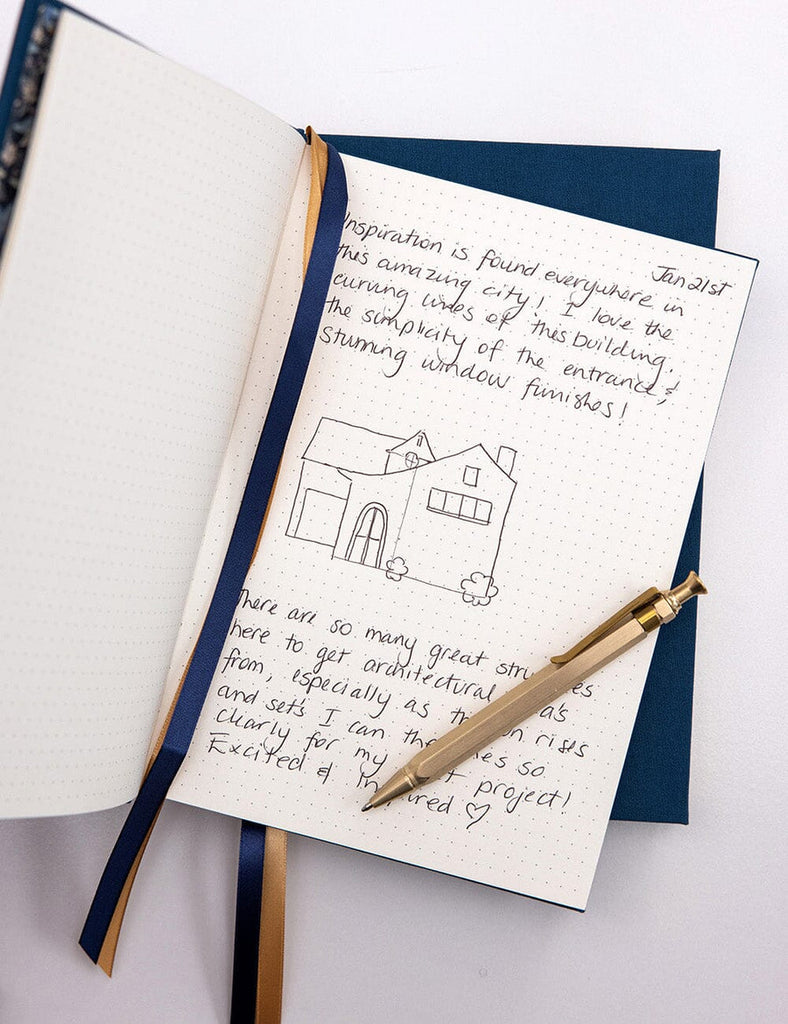 Jan 21st
Inspiration is found everywhere in
this amazing city! I love the
curving lines of this building.
the simplicity of the entrance, &
Stunning window finishes!
There are so many great
here to get architectural
from, especially as rises
and set's I can so
clearly for my project!
Excited & ♡